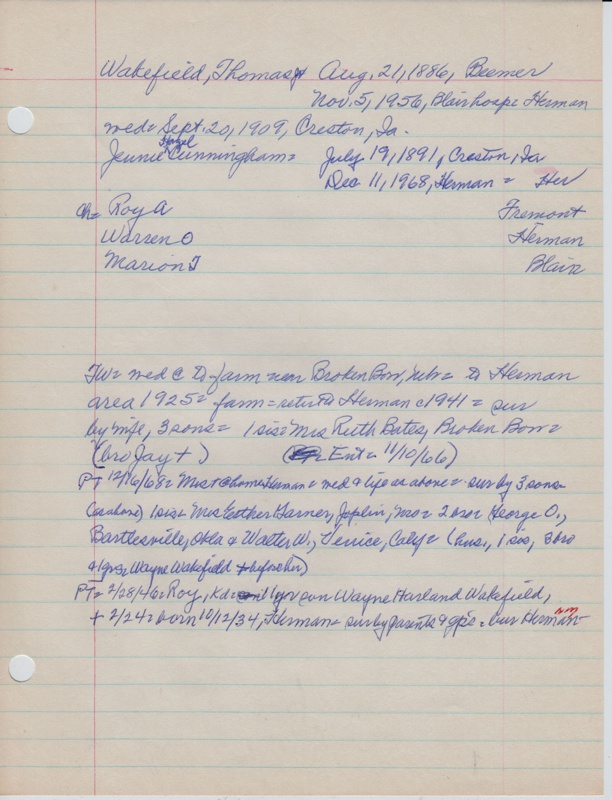 Wakefield, Thomas J Aug. 21, 1886, Beemer
Nov. 5, 1956, Blair hosp = Herman
med = Sept. 20, 1909, Creston, Ia.
Hazel
Jennie Cunningham = July 19, 1891, Creston, Ia
Dec 11, 1968, Herman = Her
Ch = Roy A Fremont
Warren O Herman
Marion J Blair
TW = med & to farm near Broken Bow, Neb = to Herman
area 1925 = farm = ret to Herman c 1941 = sur
by wife, 3 sons = 1 sis = Mrs Ruth Bates, Broken Bow =
(bro Jay +) ( Ent = 11/10/66)
PT 12/16/68 = Mrs + @ home Herman = med & life as above = sur by 3 sons
(as above) 1 sis = Mrs Esther Garner, Joplin, Mo = 2 bro = George O.,
Bartlesville, Okla & Walter W., Venice, Calif = (hus., 1 sis, 3 bro
& 1 grs Wayne Wakefield + before her)
PT = 2/28/46 = Roy, 11 yr son Wayne Harland Wakefield,
+ 2/24 = born 10/12/34, Herman = sur by parents & gps = bur Herman